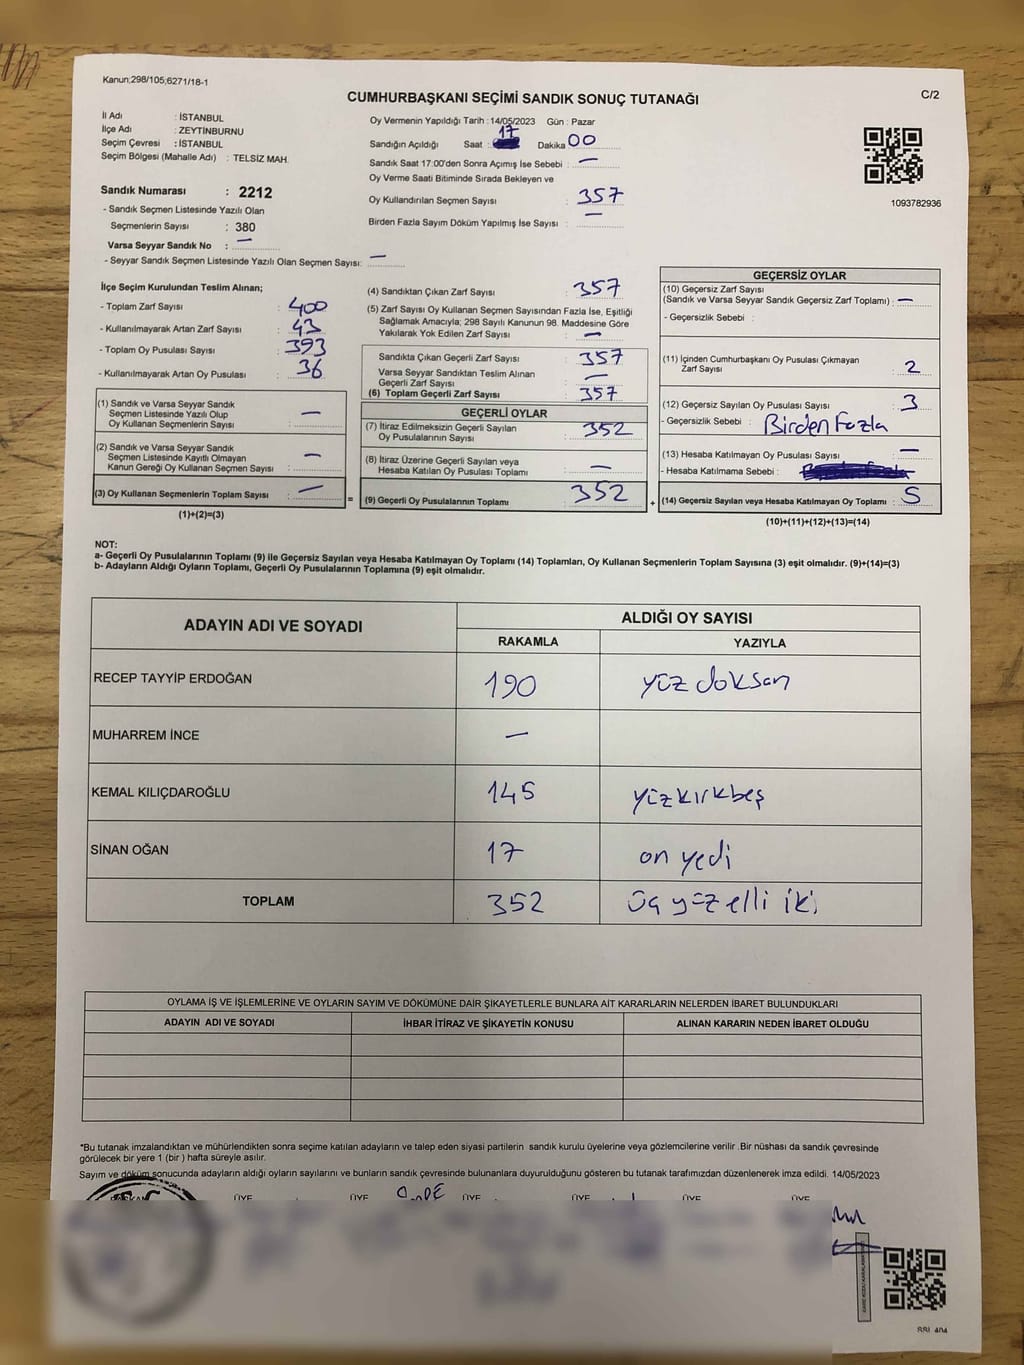 Kanun;298/105;6271/18-1
C/2
CUMHURBAŞKANI SEÇİMİ SANDIK SONUÇ TUTANAĞI
İl Adı : İSTANBUL
İlçe Adı : ZEYTİNBURNU
Seçim Çevresi : İSTANBUL
Seçim Bölgesi (Mahalle Adı) : TELSİZ MAH.
Oy Vermenin Yapıldığı Tarih : 14/05/2023 Gün : Pazar
Sandığın Açıldığı Saat : 17 Dakika 00
Sandık Saat 17:00'den Sonra Açımış İse Sebebi : —
Oy Verme Saati Bitiminde Sırada Bekleyen ve
Oy Kullandırılan Seçmen Sayısı : 357
Birden Fazla Sayım Döküm Yapılmış İse Sayısı : —
1093782936
Sandık Numarası : 2212
- Sandık Seçmen Listesinde Yazılı Olan
Seçmenlerin Sayısı : 380
Varsa Seyyar Sandık No : —
- Seyyar Sandık Seçmen Listesinde Yazılı Olan Seçmen Sayısı: —
İlçe Seçim Kurulundan Teslim Alınan;
- Toplam Zarf Sayısı : 400
- Kullanılmayarak Artan Zarf Sayısı : 43
- Toplam Oy Pusulası Sayısı : 393
- Kullanılmayarak Artan Oy Pusulası : 36
(1) Sandık ve Varsa Seyyar Sandık
Seçmen Listesinde Yazılı Olup
Oy Kullanan Seçmenlerin Sayısı : —
(2) Sandık ve Varsa Seyyar Sandık
Seçmen Listesinde Kayıtlı Olmayan
Kanun Gereği Oy Kullanan Seçmen Sayısı : —
(3) Oy Kullanan Seçmenlerin Toplam Sayısı : — =
(1)+(2)=(3)
(4) Sandıktan Çıkan Zarf Sayısı : 357
(5) Zarf Sayısı Oy Kullanan Seçmen Sayısından Fazla İse, Eşitliği
Sağlamak Amacıyla; 298 Sayılı Kanunun 98. Maddesine Göre
Yakılarak Yok Edilen Zarf Sayısı : —
Sandıkta Çıkan Geçerli Zarf Sayısı : 357
Varsa Seyyar Sandıktan Teslim Alınan
Geçerli Zarf Sayısı : —
(6) Toplam Geçerli Zarf Sayısı : 357
GEÇERLİ OYLAR
(7) İtiraz Edilmeksizin Geçerli Sayılan
Oy Pusulalarının Sayısı : 352
(8) İtiraz Üzerine Geçerli Sayılan veya
Hesaba Katılan Oy Pusulası Toplamı : —
(9) Geçerli Oy Pusulalarının Toplamı : 352 +
GEÇERSİZ OYLAR
(10) Geçersiz Zarf Sayısı
(Sandık ve Varsa Seyyar Sandık Geçersiz Zarf Toplamı) : —
- Geçersizlik Sebebi :
(11) İçinden Cumhurbaşkanı Oy Pusulası Çıkmayan
Zarf Sayısı : 2
(12) Geçersiz Sayılan Oy Pusulası Sayısı : 3
- Geçersizlik Sebebi : Birden Fazla
(13) Hesaba Katılmayan Oy Pusulası Sayısı : —
- Hesaba Katılmama Sebebi :
(14) Geçersiz Sayılan veya Hesaba Katılmayan Oy Toplamı : 5
(10)+(11)+(12)+(13)=(14)
NOT:
a- Geçerli Oy Pusulalarının Toplamı (9) ile Geçersiz Sayılan veya Hesaba Katılmayan Oy Toplamı (14) Toplamları, Oy Kullanan Seçmenlerin Toplam Sayısına (3) eşit olmalıdır. (9)+(14)=(3)
b- Adayların Aldığı Oyların Toplamı, Geçerli Oy Pusulalarının Toplamına (9) eşit olmalıdır.
ADAYIN ADI VE SOYADI
ALDIĞI OY SAYISI
RAKAMLA YAZIYLA
RECEP TAYYİP ERDOĞAN 190 yüz doksan
MUHARREM İNCE —
KEMAL KILIÇDAROĞLU 145 yüzkırkbeş
SİNAN OĞAN 17 on yedi
TOPLAM 352 üç yüz elli iki
OYLAMA İŞ VE İŞLEMLERİNE VE OYLARIN SAYIM VE DÖKÜMÜNE DAİR ŞİKAYETLERLE BUNLARA AİT KARARLARIN NELERDEN İBARET BULUNDUKLARI
ADAYIN ADI VE SOYADI İHBAR İTİRAZ VE ŞİKAYETİN KONUSU ALINAN KARARIN NEDEN İBARET OLDUĞU
*Bu tutanak imzalandıktan ve mühürlendikten sonra seçime katılan adayların ve talep eden siyasi partilerin sandık kurulu üyelerine veya gözlemcilerine verilir .Bir nüshası da sandık çevresinde
görülecek bir yere 1 (bir ) hafta süreyle asılır.
Sayım ve döküm sonucunda adayların aldığı oyların sayılarını ve bunların sandık çevresinde bulunanlara duyurulduğunu gösteren bu tutanak tarafımızdan düzenlenerek imza edildi. 14/05/2023
ÜYE ÜYE ÜYE ÜYE ÜYE ÜYE